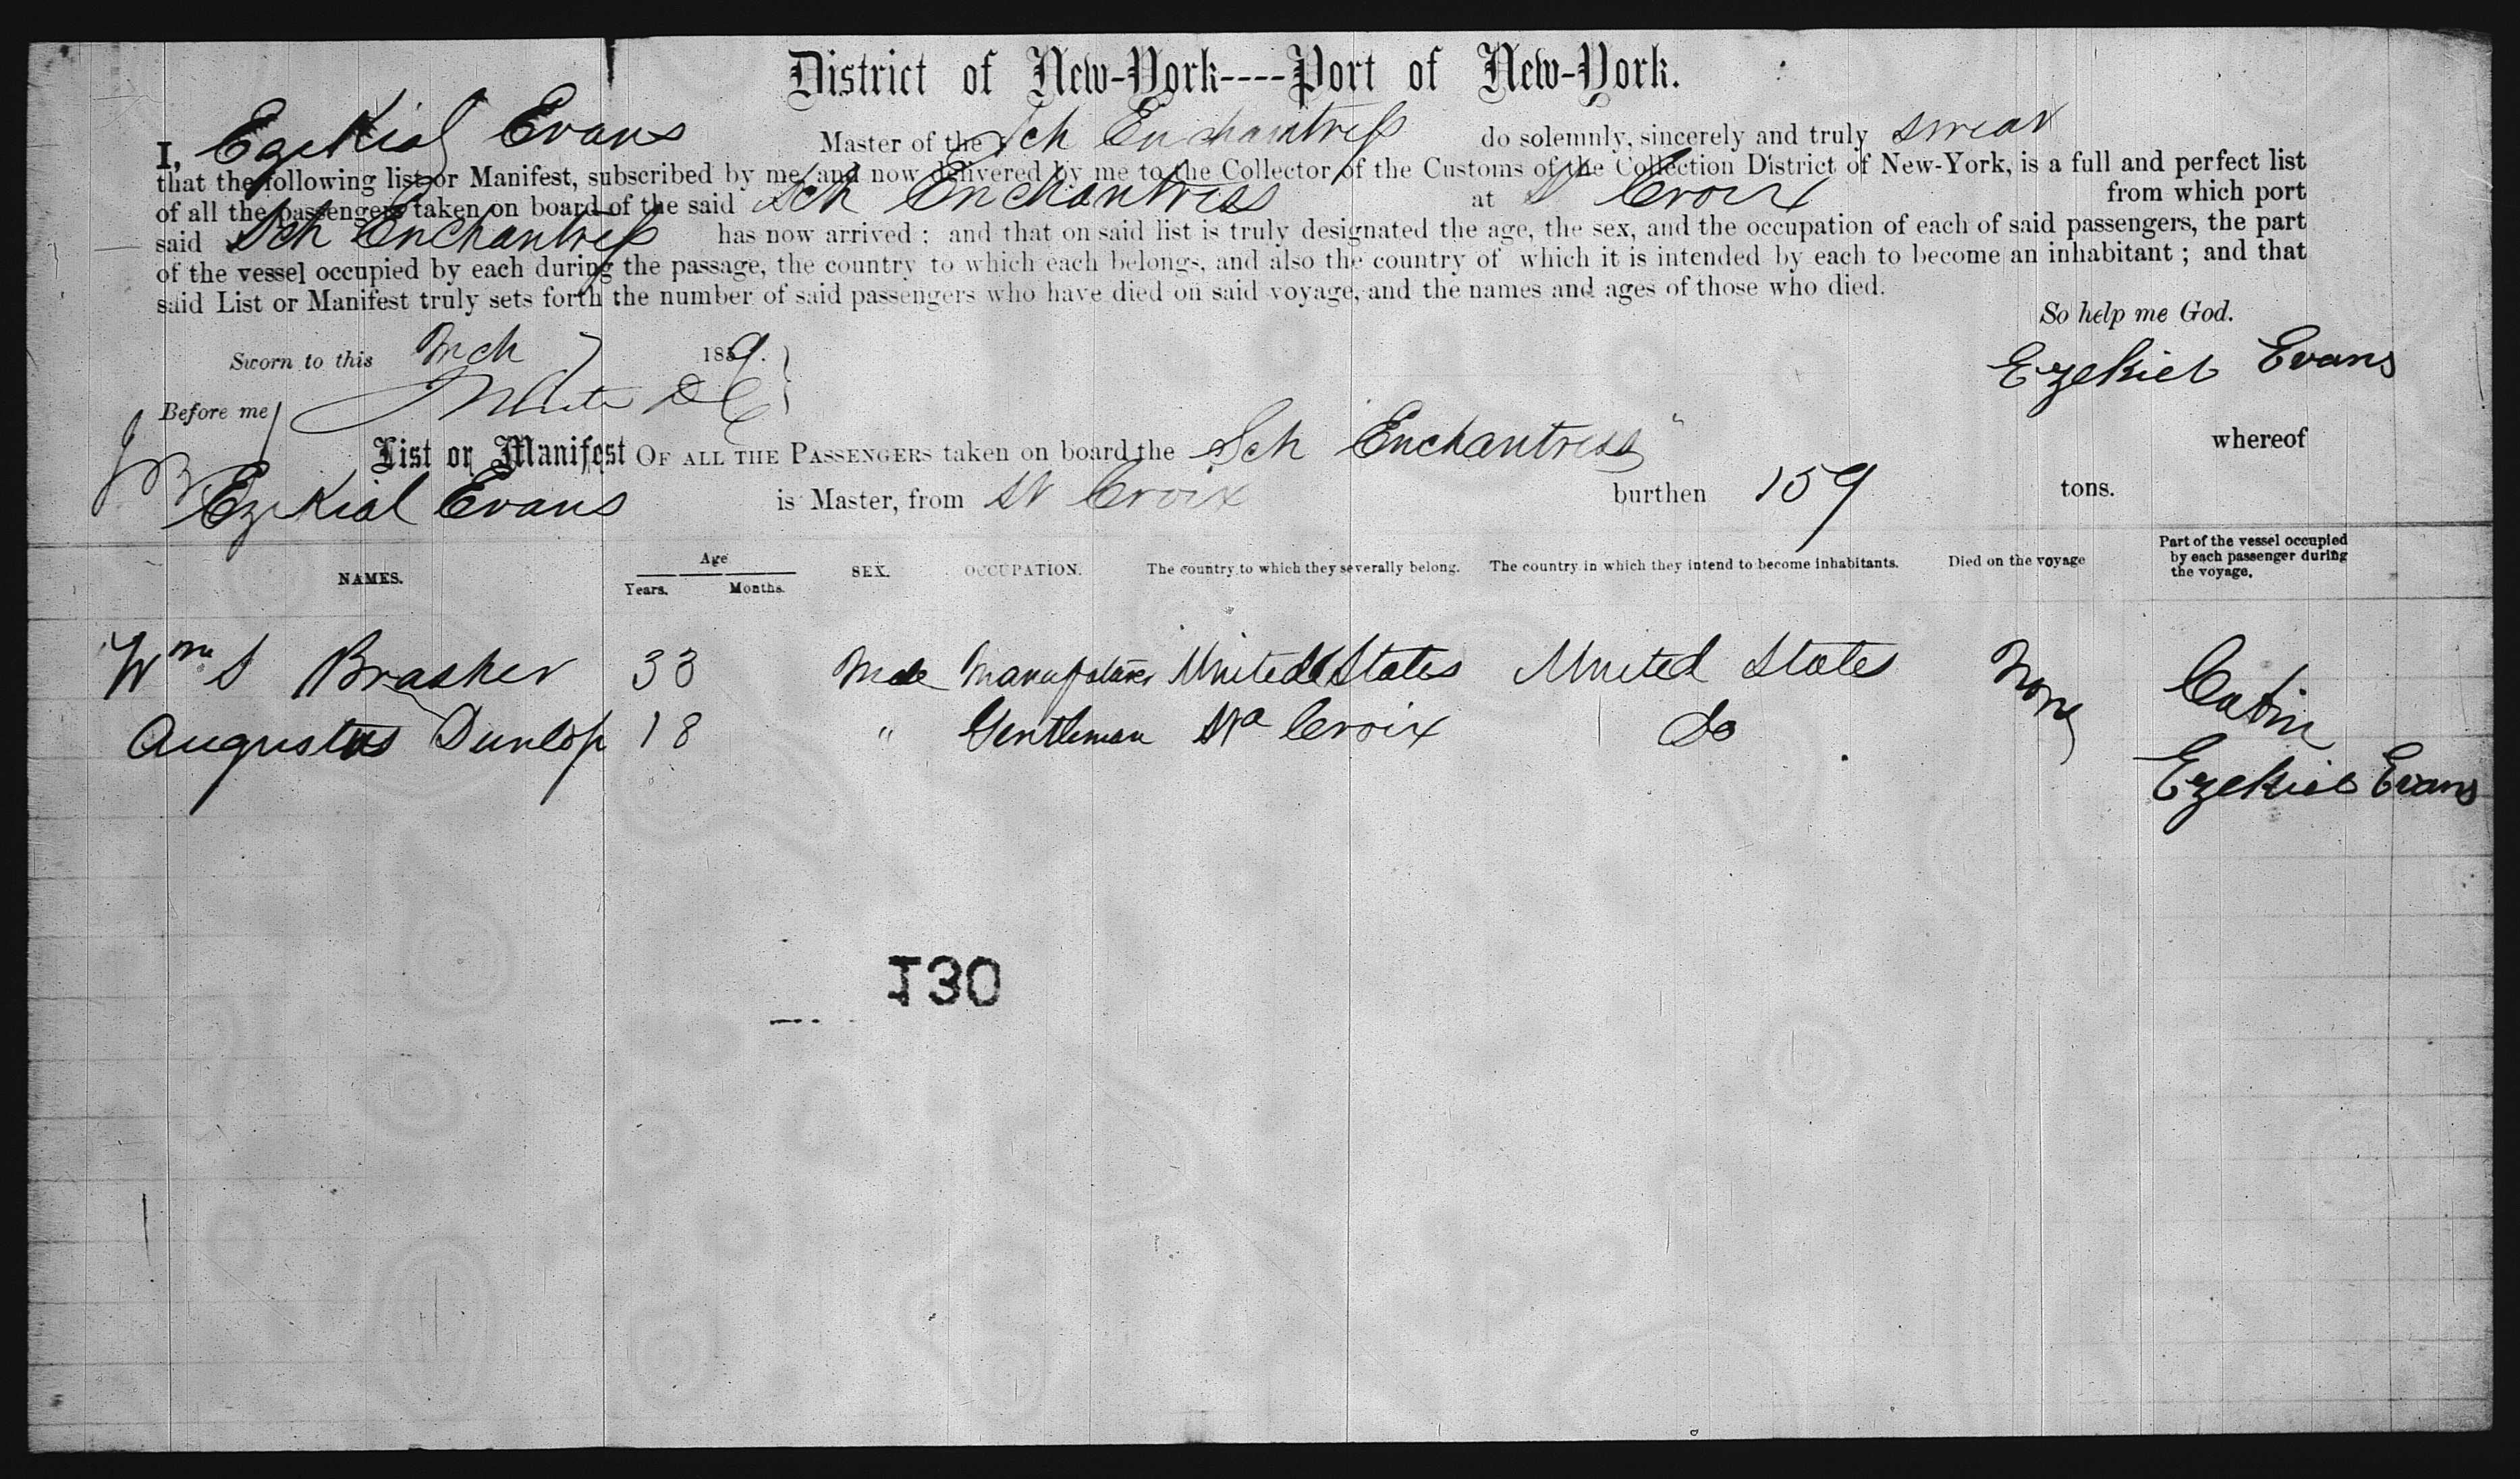 District of New-York----Port of New-York.
I, Ezekial Evans Master of the Sch Enchantress do solemnly, sincerely and truly swear
that the following list or Manifest, subscribed by me, and now delivered by me to the Collector of the Customs of the Collection District of New-York, is a full and perfect list
of all the passengers taken on board of the said Sch Enchantress at St Croix from which port
said Sch Enchantress has now arrived: and that on said list is truly designated the age, the sex, and the occupation of each of said passengers, the part
of the vessel occupied by each during the passage, the country to which each belongs, and also the country of which it is intended by each to become an inhabitant; and that
said List or Manifest truly sets forth the number of said passengers who have died on said voyage, and the names and ages of those who died.
So help me God.
Sworn to this Mch 7 1859.
Ezekiel Evans
Before me
List or Manifest OF ALL THE PASSENGERS taken on board the Sch Enchantress whereof
Ezekial Evans is Master, from St Croix burthen 159 tons.
NAMES. Age Years. Months. SEX. OCCUPATION. The country to which they severally belong. The country in which they intend to become inhabitants. Died on the voyage Part of the vessel occupied by each passenger during the voyage.
Wm S Brasher 33 Male United States United States None Cabin
Augustus Dunlop 18 " Gentleman Sta Croix do
Ezekiel Evans
130